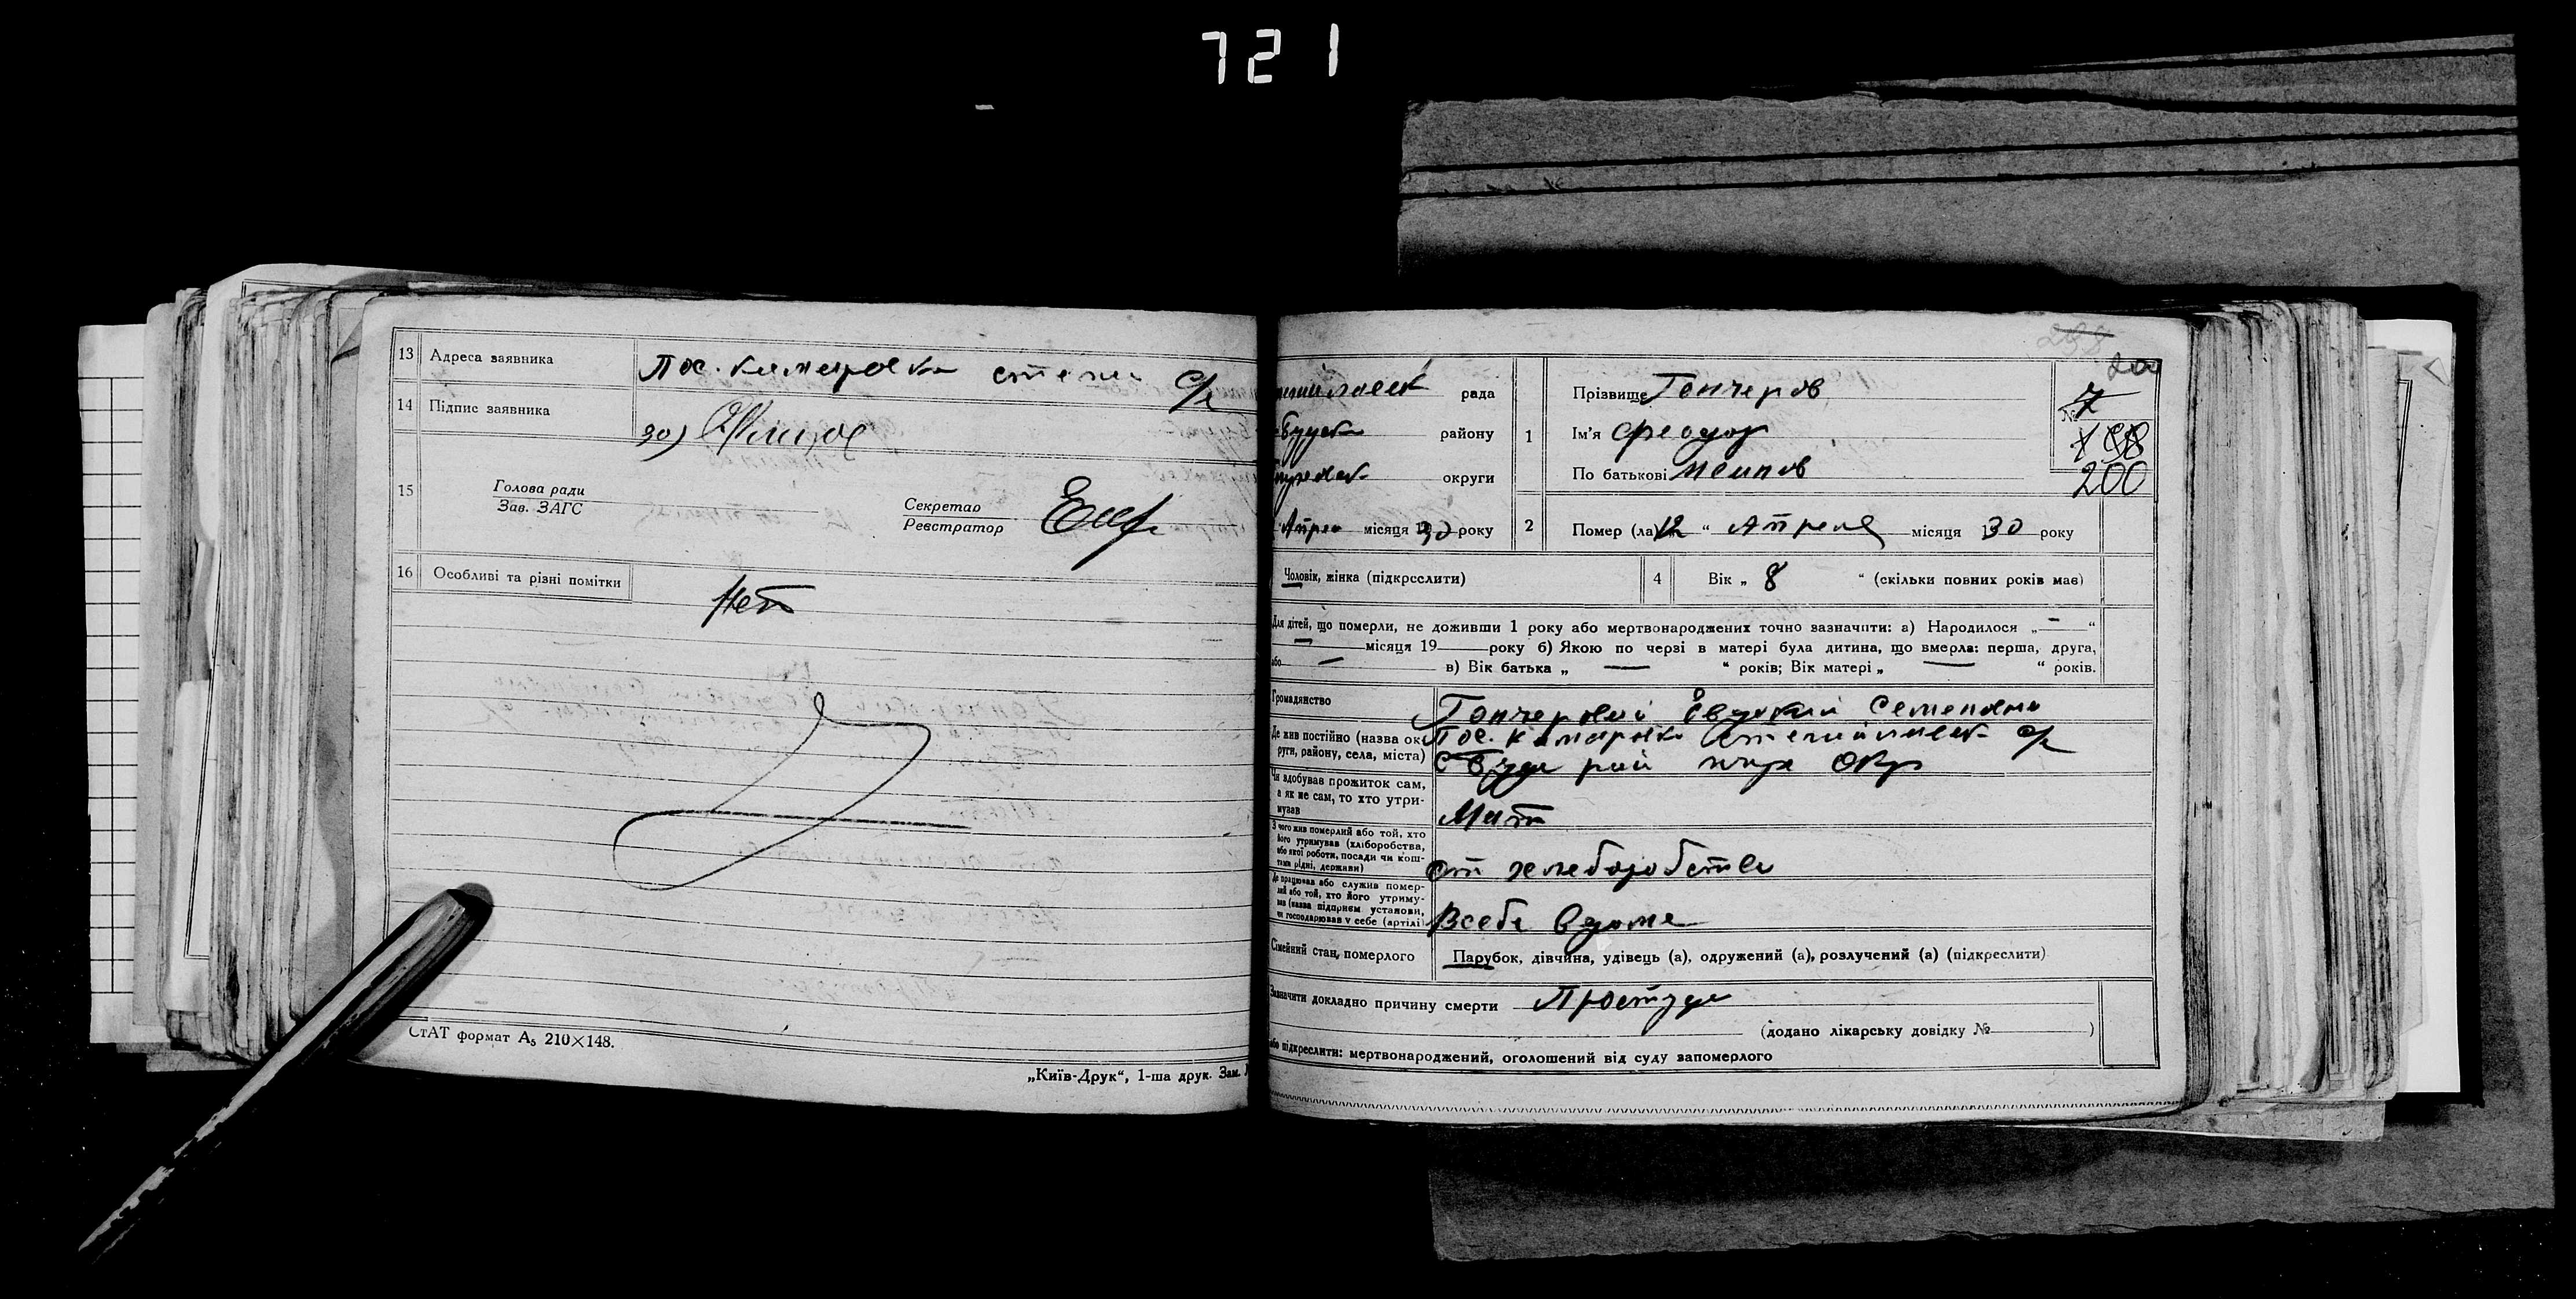 721
13 Адреса заявника Пос. с/р
14 Підпис заявника
15 Голова ради
Зав. ЗАГС
Секретар
Реєстратор
16 Особливі та різні помітки Нет
СтАТ формат А₅ 210×148.
„Київ-Друк“, 1-ша друк. Зам.
200
рада
району
округи
Апрел місяця 30 року
1 Прізвище Гончеров
Ім'я Феодор
По батькові
№ 7
198
200
2 Помер (ла) 12 “ Апреля місяця 130 року
Чоловік, жінка (підкреслити)
4 Вік „ 8 “ (скільки повних років має)
Для дітей, що померли, не доживши 1 року або мертвонароджених точно зазначити: а) Народилося „—“
— місяця 19—року б) Якою по черзі в матері була дитина, що вмерла: перша, друга,
або — в) Вік батька „ — “ років; Вік матері „ — “ років.
Громадянство Гончеровой Семеновна
Де жив постійно (назва округи, району, села, міста) Пос. с/р
рай окр
Чи здобував прожиток сам, а як не сам, то хто утримував Мат
З чого жив померлий або той, хто його утримував (хліборобства, або якої роботи, посади чи коштами рідні, держави) от хлеборобства
Де працював або служив померлий або той, хто його утримував (назва підприєм установи, чи господарював у себе (артілі) Всебе вдоме
Сімейний стан, померлого Парубок, дівчина, удівець (а), одружений (а), розлучений (а) (підкреслити)
Зазначити докладно причину смерти Простуда
(додано лікарську довідку № )
або підкреслити: мертвонароджений, оголошений від суду запомерлого